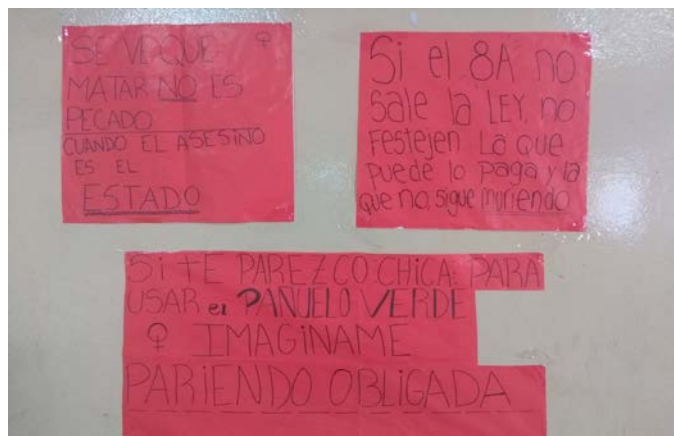 SE VE QUE ♀
MATAR NO ES
PECADO
CUANDO EL ASESINO
ES EL
ESTADO
Si el 8A no
sale la LEY, no
Festejen La que
puede lo paga y la
que no, sigue muriendo
Si TE PAREZCO CHICA PARA
USAR el PAÑUELO VERDE
♀ IMAGiNAME
PARiENDO OBLiGADA